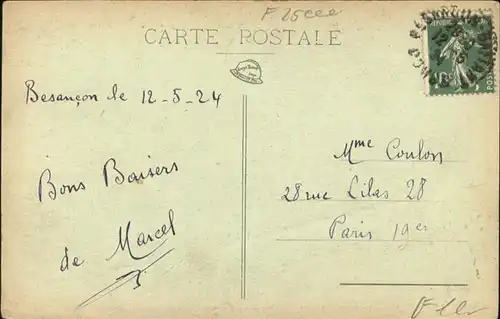 CARTE POSTALE
Besançon le 12-5-24
Bons Baisers
de Marcel
Mme Coulon
28 rue Lilas 28
Paris 19er